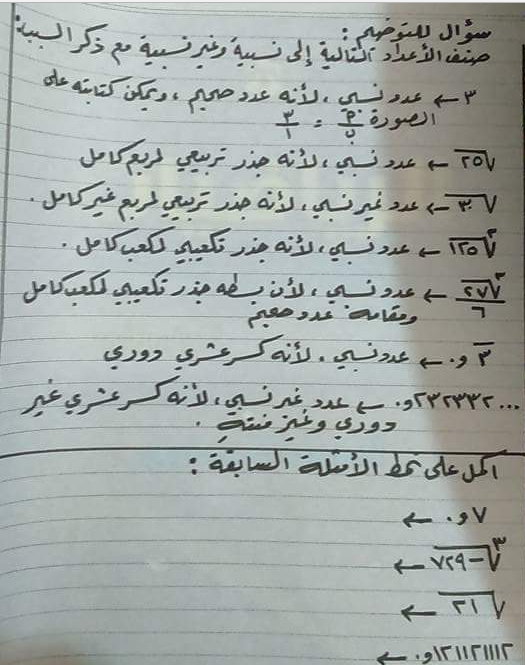 سؤال للتوضيح :
صنف الأعداد التالية إلى نسبية وغير نسبية مع ذكر السبب :
٣ ← عدد نسبي ، لأنه عدد صحيح ، ويمكن كتابته على
الصورة أ/ب = ٣/١
√٢٥ ← عدد نسبي ، لأنه جذر تربيعي لمربع كامل
√٣٠ ← عدد غير نسبي ، لأنه جذر تربيعي لمربع غير كامل .
∛١٢٥ ← عدد نسبي ، لأنه جذر تكعيبي لمكعب كامل .
∛٢٧/٦ ← عدد نسبي ، لأن بسطه جذر تكعيبي لمكعب كامل
ومقامه عدد صحيح
٠و٣̅ ← عدد نسبي . لأنه كسر عشري دوري
٠و٢٣٢٣٣٢... ← عدد غير نسبي ، لأنه كسر عشري غير
دوري وغير منتهِ .
اكمل على نمط الأمثلة السابقة :
٠و٧ ←
∛-٧٢٩ ←
√٢١ ←
٠و١٢١١٢١١١٢ ←